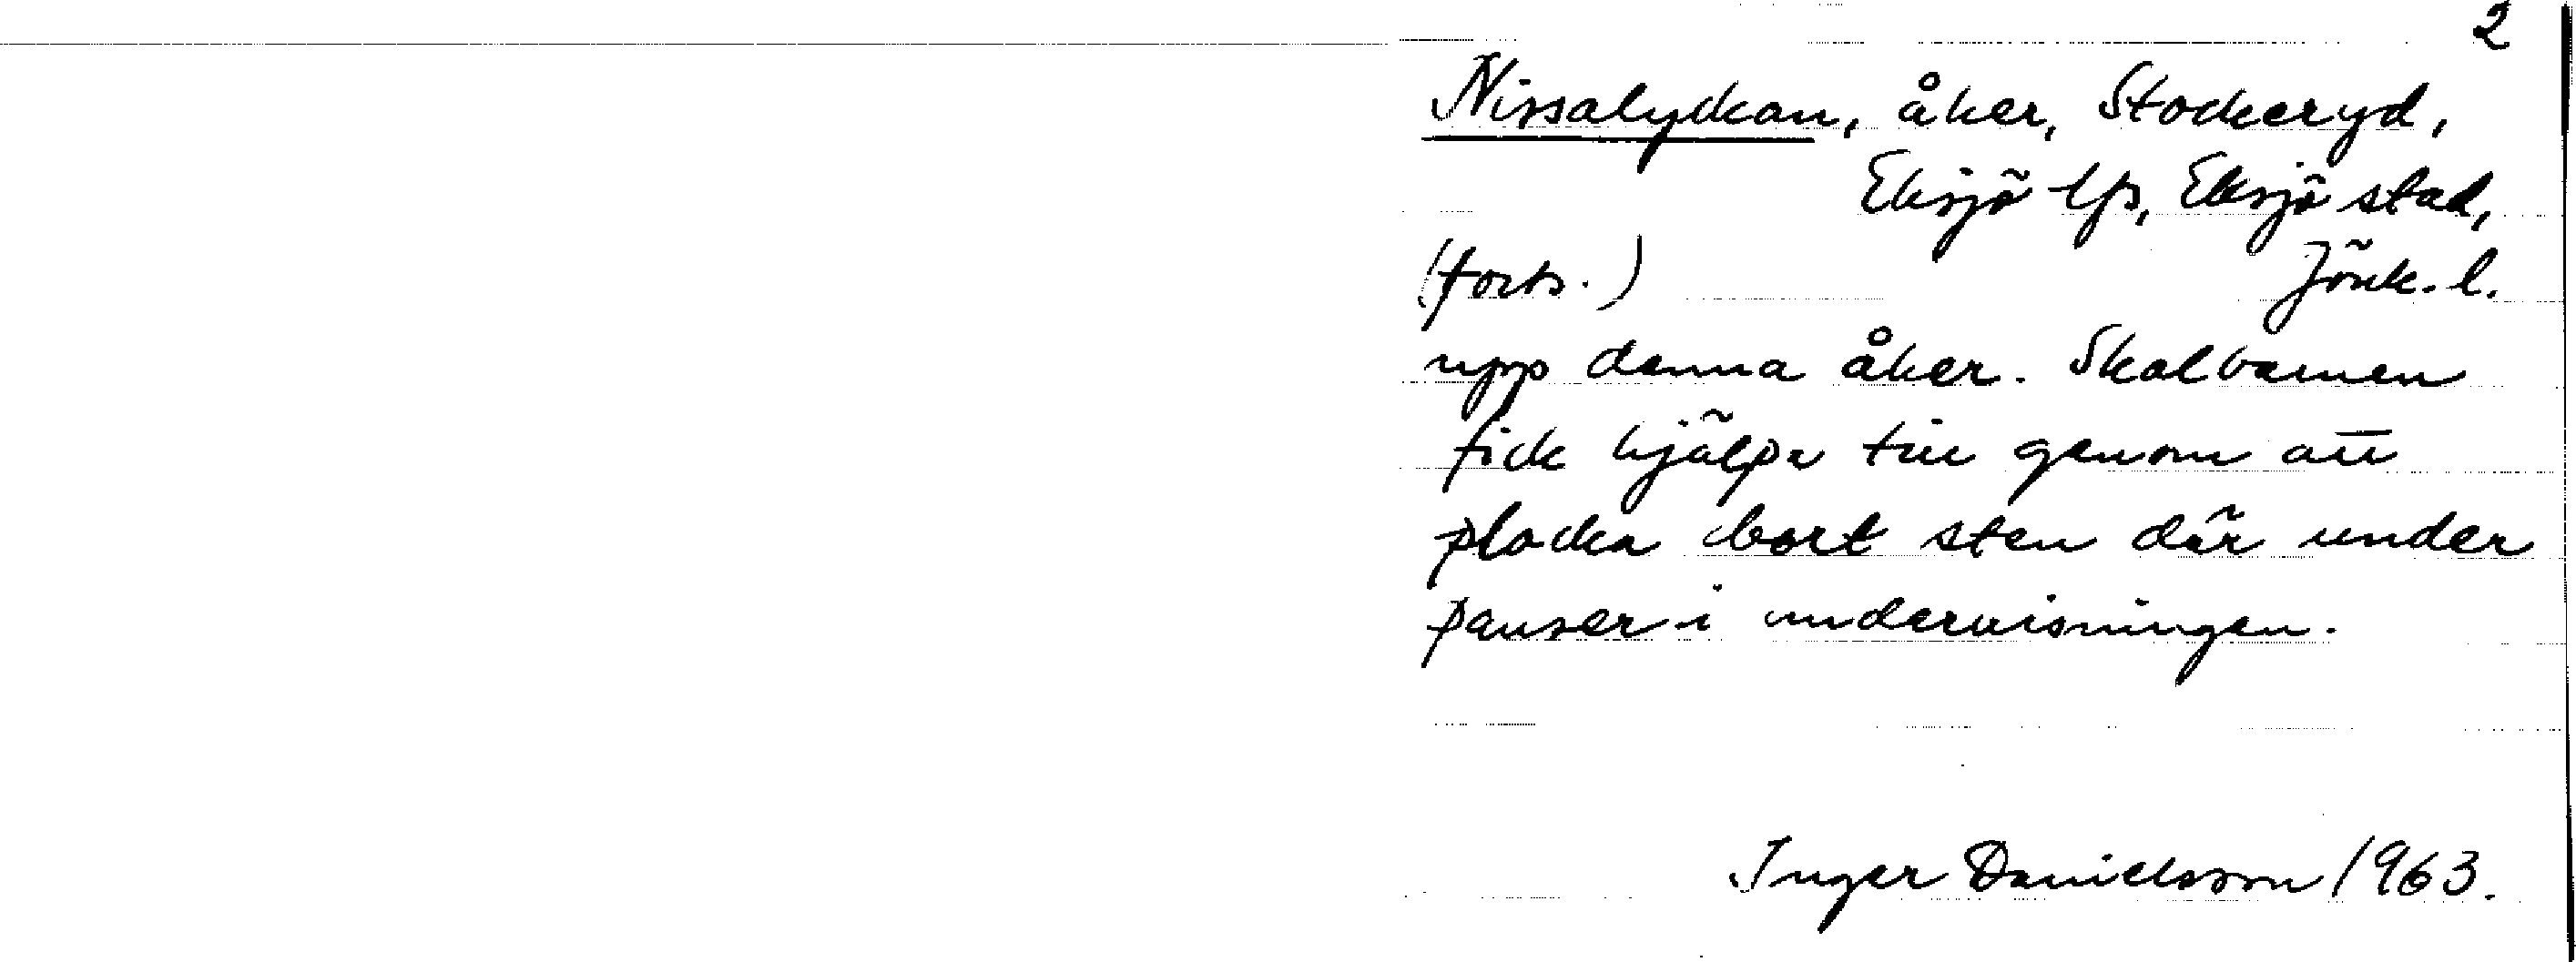 2
Nissalyckan, åker, Stockeryd,
Eksjö lfs, Eksjö stad,
(forts.) Jönk. l.
upp denna åker. Skolbarnen
fick hjälpa till genom att
plocka bort sten där under
pauser i undervisningen.
Inger Danielsson 1963.